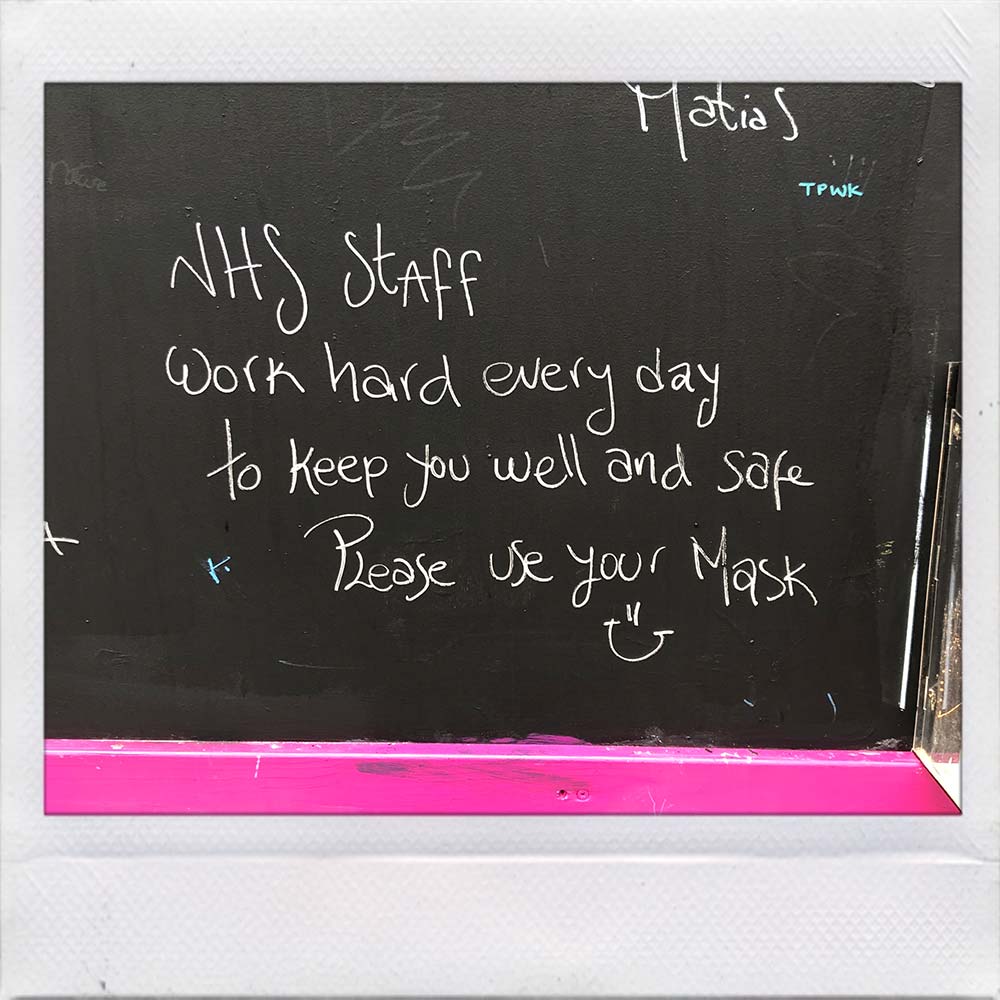 Matias
TPWK
NHS Staff
work hard every day
to keep you well and safe
Please use your Mask